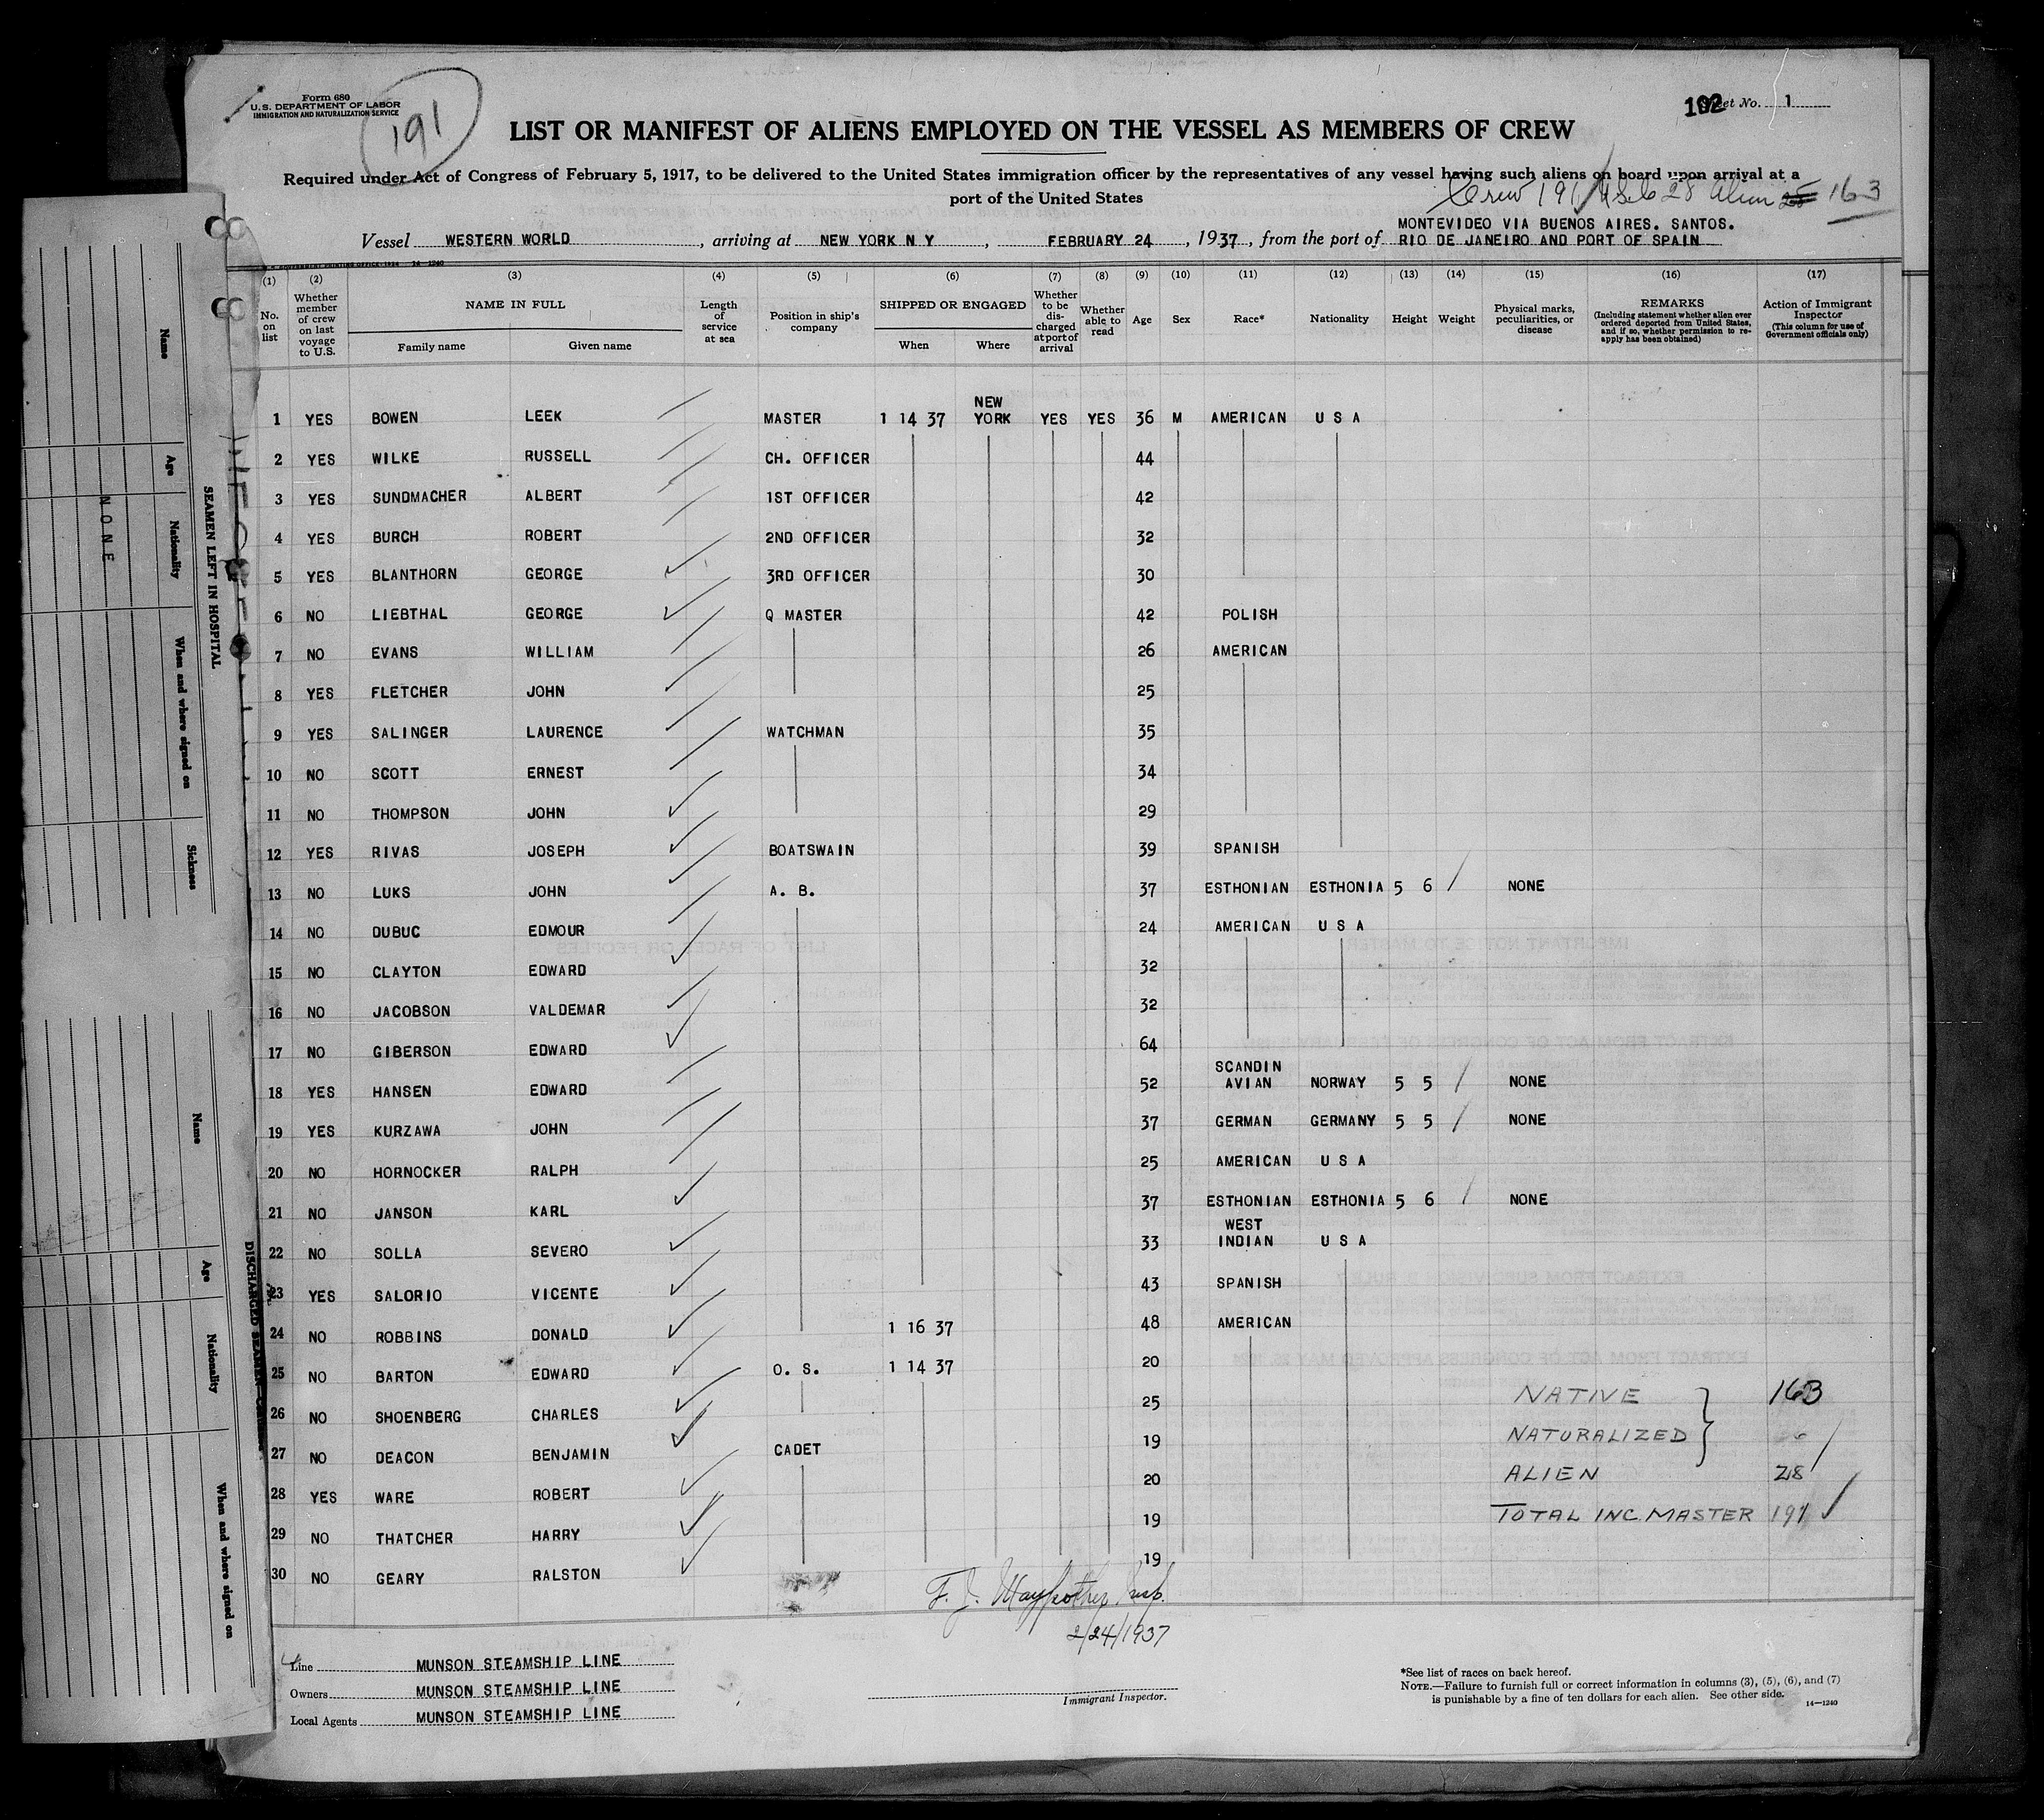 Form 680
U.S. DEPARTMENT OF LABOR
IMMIGRATION AND NATURALIZATION SERVICE
191
102
Sheet No. 1
LIST OR MANIFEST OF ALIENS EMPLOYED ON THE VESSEL AS MEMBERS OF CREW
Required under Act of Congress of February 5, 1917, to be delivered to the United States immigration officer by the representatives of any vessel having such aliens on board upon arrival at a
port of the United States
Crew 191 28 Alien 163
MONTEVIDEO VIA BUENOS AIRES. SANTOS.
Vessel WESTERN WORLD, arriving at NEW YORK N Y, FEBRUARY 24, 1937, from the port of RIO DE JANEIRO AND PORT OF SPAIN
(1) (2) (3) (4) (5) (6) (7) (8) (9) (10) (11) (12) (13) (14) (15) (16) (17)
No. on list
Whether member of crew on last voyage to U.S.
NAME IN FULL
Family name Given name
Length of service at sea
Position in ship's company
SHIPPED OR ENGAGED
When Where
Whether to be discharged at port of arrival
Whether able to read
Age
Sex
Race*
Nationality
Height
Weight
Physical marks, peculiarities, or disease
REMARKS
(Including statement whether alien ever ordered deported from United States, and if so, whether permission to reapply has been obtained)
Action of Immigrant Inspector
(This column for use of Government officials only)
1 YES BOWEN LEEK MASTER 1 14 37 NEW YORK YES YES 36 M AMERICAN U S A
2 YES WILKE RUSSELL CH. OFFICER 44
3 YES SUNDMACHER ALBERT 1ST OFFICER 42
4 YES BURCH ROBERT 2ND OFFICER 32
5 YES BLANTHORN GEORGE 3RD OFFICER 30
6 NO LIEBTHAL GEORGE Q MASTER 42 POLISH
7 NO EVANS WILLIAM 26 AMERICAN
8 YES FLETCHER JOHN 25
9 YES SALINGER LAURENCE WATCHMAN 35
10 NO SCOTT ERNEST 34
11 NO THOMPSON JOHN 29
12 YES RIVAS JOSEPH BOATSWAIN 39 SPANISH
13 NO LUKS JOHN A. B. 37 ESTHONIAN ESTHONIA 5 6 NONE
14 NO DUBUC EDMOUR 24 AMERICAN U S A
15 NO CLAYTON EDWARD 32
16 NO JACOBSON VALDEMAR 32
17 NO GIBERSON EDWARD 64
18 YES HANSEN EDWARD 52 SCANDIN AVIAN NORWAY 5 5 NONE
19 YES KURZAWA JOHN 37 GERMAN GERMANY 5 5 NONE
20 NO HORNOCKER RALPH 25 AMERICAN U S A
21 NO JANSON KARL 37 ESTHONIAN ESTHONIA 5 6 NONE
22 NO SOLLA SEVERO 33 WEST INDIAN U S A
23 YES SALORIO VICENTE 43 SPANISH
24 NO ROBBINS DONALD 1 16 37 48 AMERICAN
25 NO BARTON EDWARD O. S. 1 14 37 20
26 NO SHOENBERG CHARLES 25
27 NO DEACON BENJAMIN CADET 19
28 YES WARE ROBERT 20
29 NO THATCHER HARRY 19
30 NO GEARY RALSTON 19
NATIVE 163
NATURALIZED
ALIEN 28
TOTAL INC. MASTER 191
F. J. Insp.
2/24/1937
Line MUNSON STEAMSHIP LINE
Owners MUNSON STEAMSHIP LINE
Local Agents MUNSON STEAMSHIP LINE
Immigrant Inspector.
*See list of races on back hereof.
NOTE.—Failure to furnish full or correct information in columns (3), (5), (6), and (7)
is punishable by a fine of ten dollars for each alien. See other side.
14—1240
SEAMEN LEFT IN HOSPITAL
Name
Age
Nationality
When and where signed on
Sickness
NONE
DISCHARGED SEAMEN
Name
Age
Nationality
When and where signed on